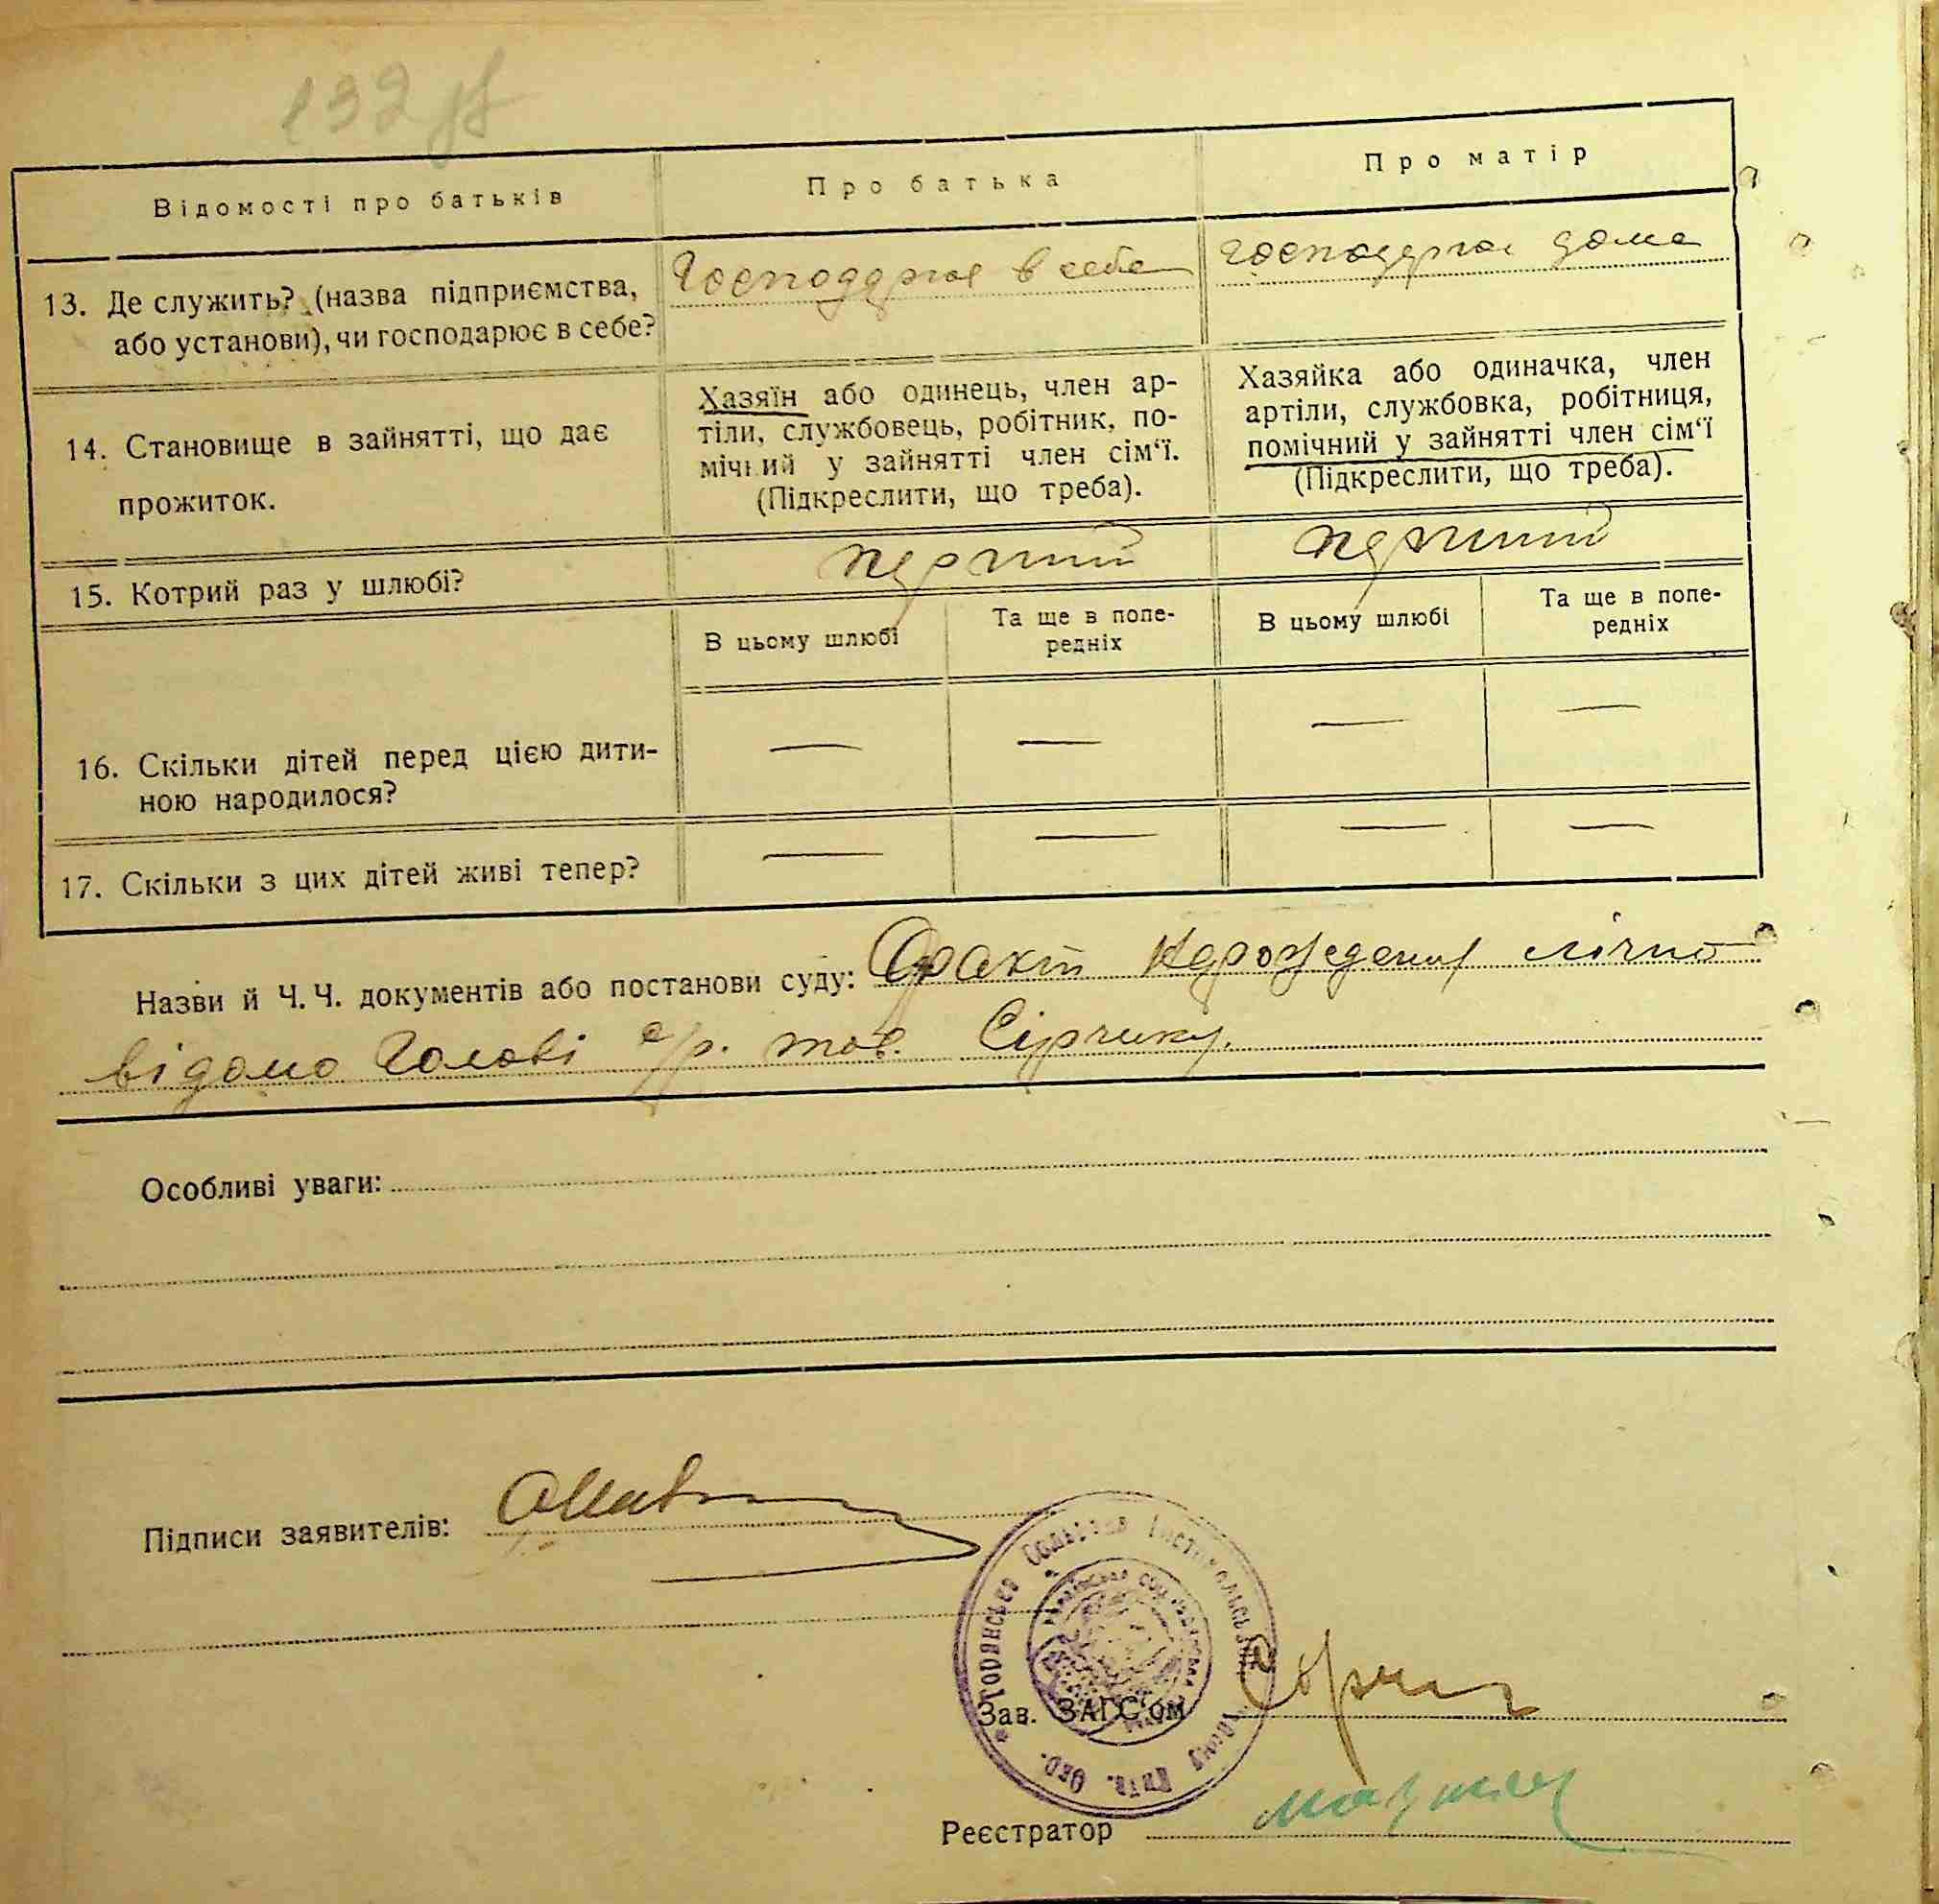 132 зв
Відомості про батьків
Про батька
Про матір
13. Де служить? (назва підприємства,
або установи), чи господарює в себе?
Господарює в себе
господарює дома
14. Становище в зайнятті, що дає
прожиток.
Хазяїн або одинець, член ар-
тіли, службовець, робітник, по-
мічний у зайнятті член сім‘ї.
(Підкреслити, що треба).
Хазяйка або одиначка, член
артіли, службовка, робітниця,
помічний у зайнятті член сім‘ї
(Підкреслити, що треба).
15. Котрий раз у шлюбі?
перший
перший
В цьому шлюбі
Та ще в попе-
редніх
В цьому шлюбі
Та ще в попе-
редніх
16. Скільки дітей перед цією дити-
ною народилося?
— — — —
17. Скільки з цих дітей живі тепер?
— — — —
Назви й Ч. Ч. документів або постанови суду: Факт народження лічно
відомо Голові с/р. тов. Сірчику.
Особливі уваги:
Підписи заявителів:
Зав. ЗАГС‘ом
Реєстратор